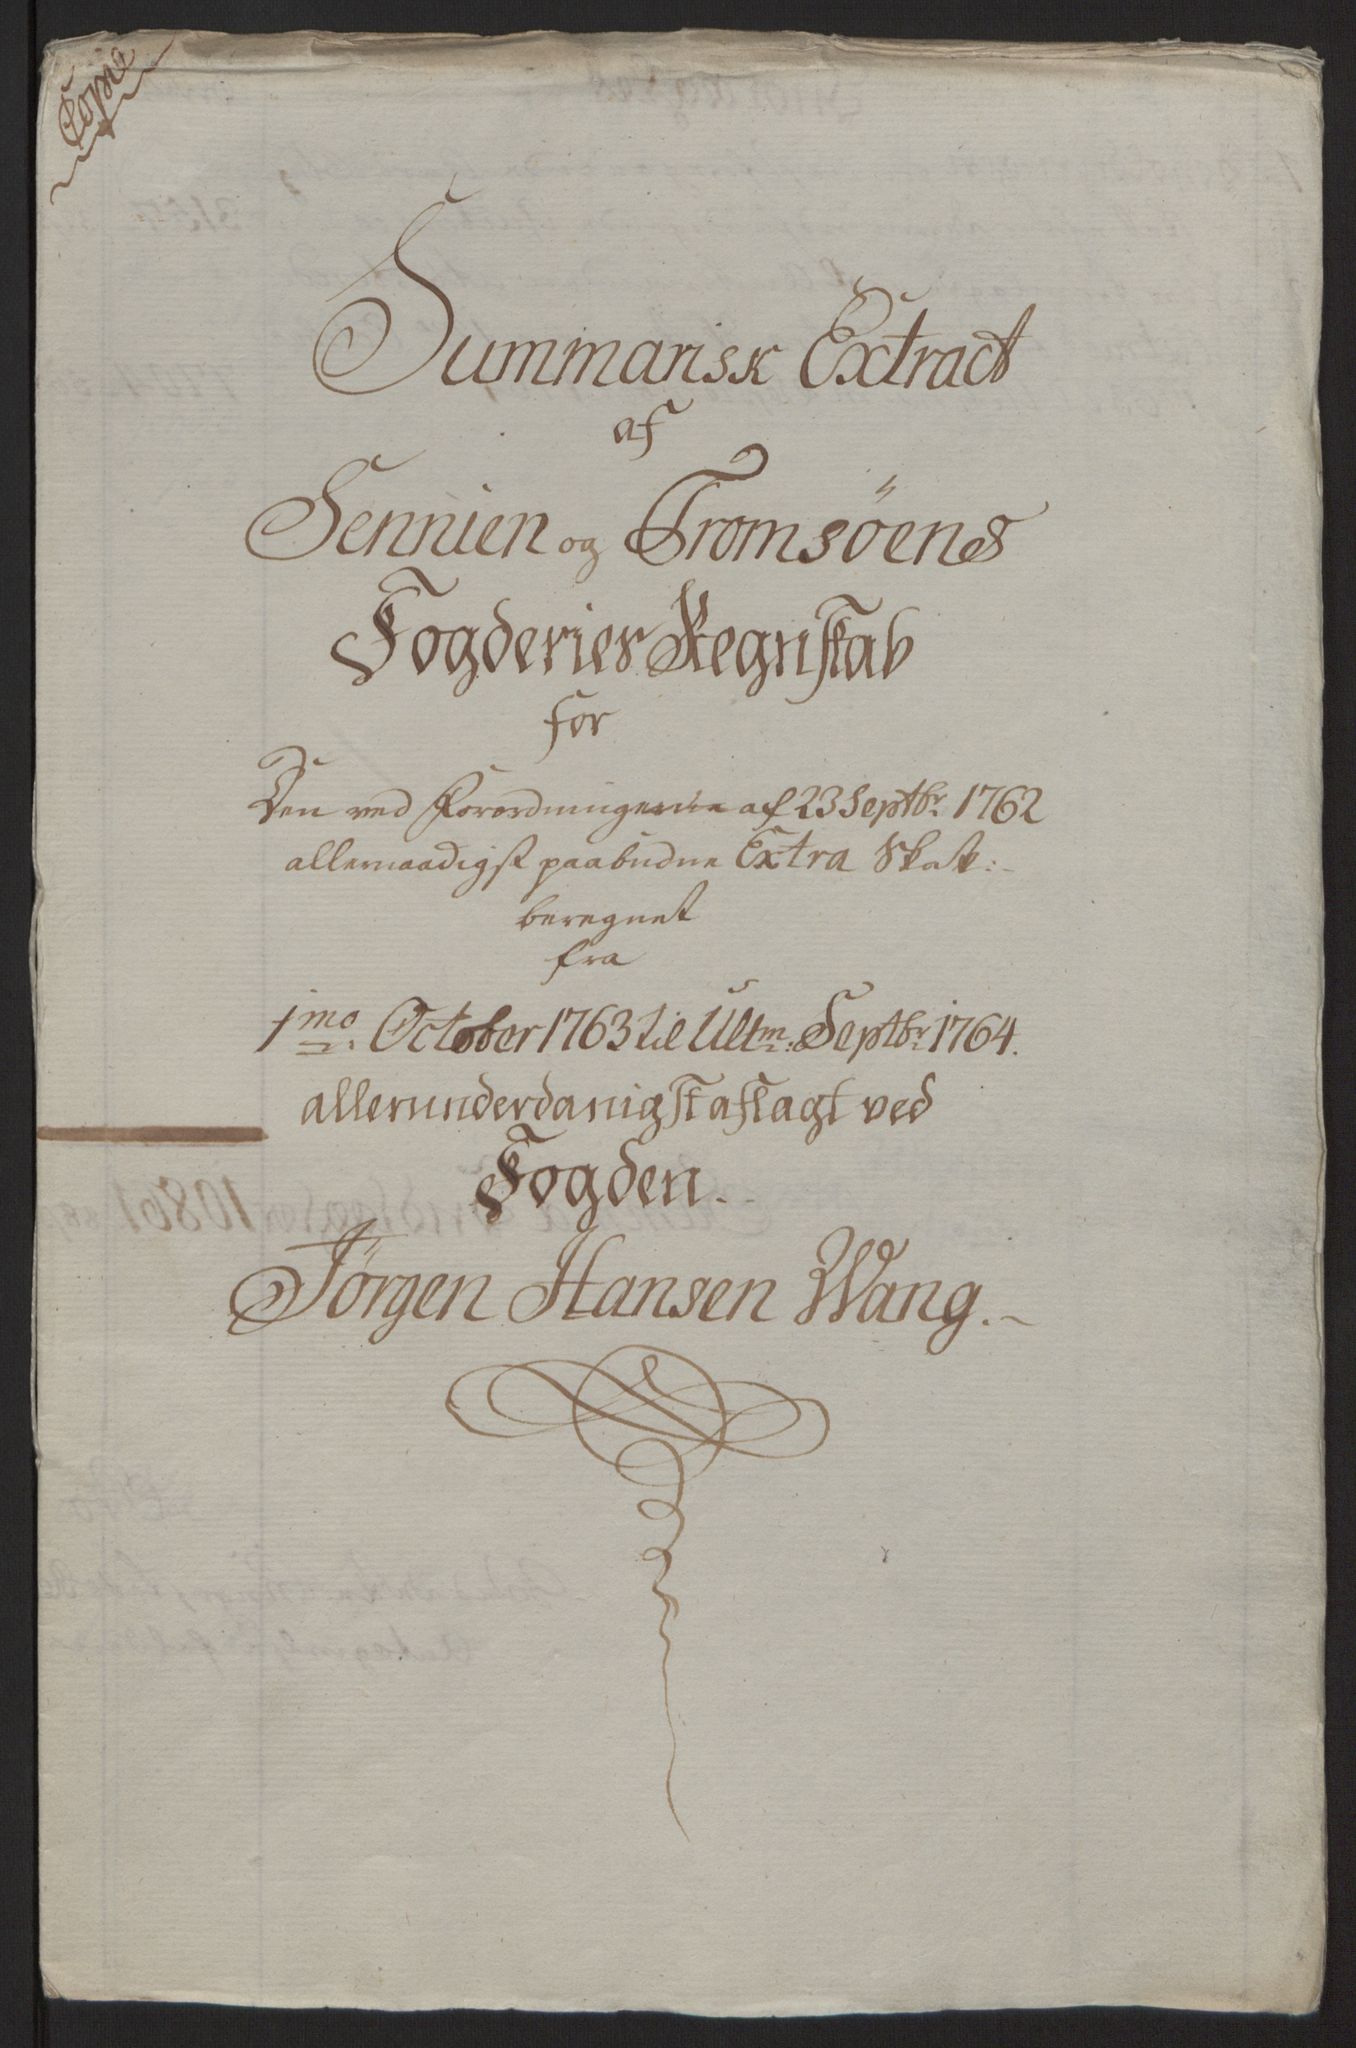 Copie
Summarisk Extract
af
Sennien og Tromsöens
Fogderies Regnskab
for
Den ved Forordningerne af 23 Septbr: 1762
allernaadigst paabudne Extra Skatt:
beregnet
fra
1mo: October 1763 til Ultm: Septbr: 1764.
allerunderdanigst aflagt ved
Fogden.
Jörgen Hansen Wang.